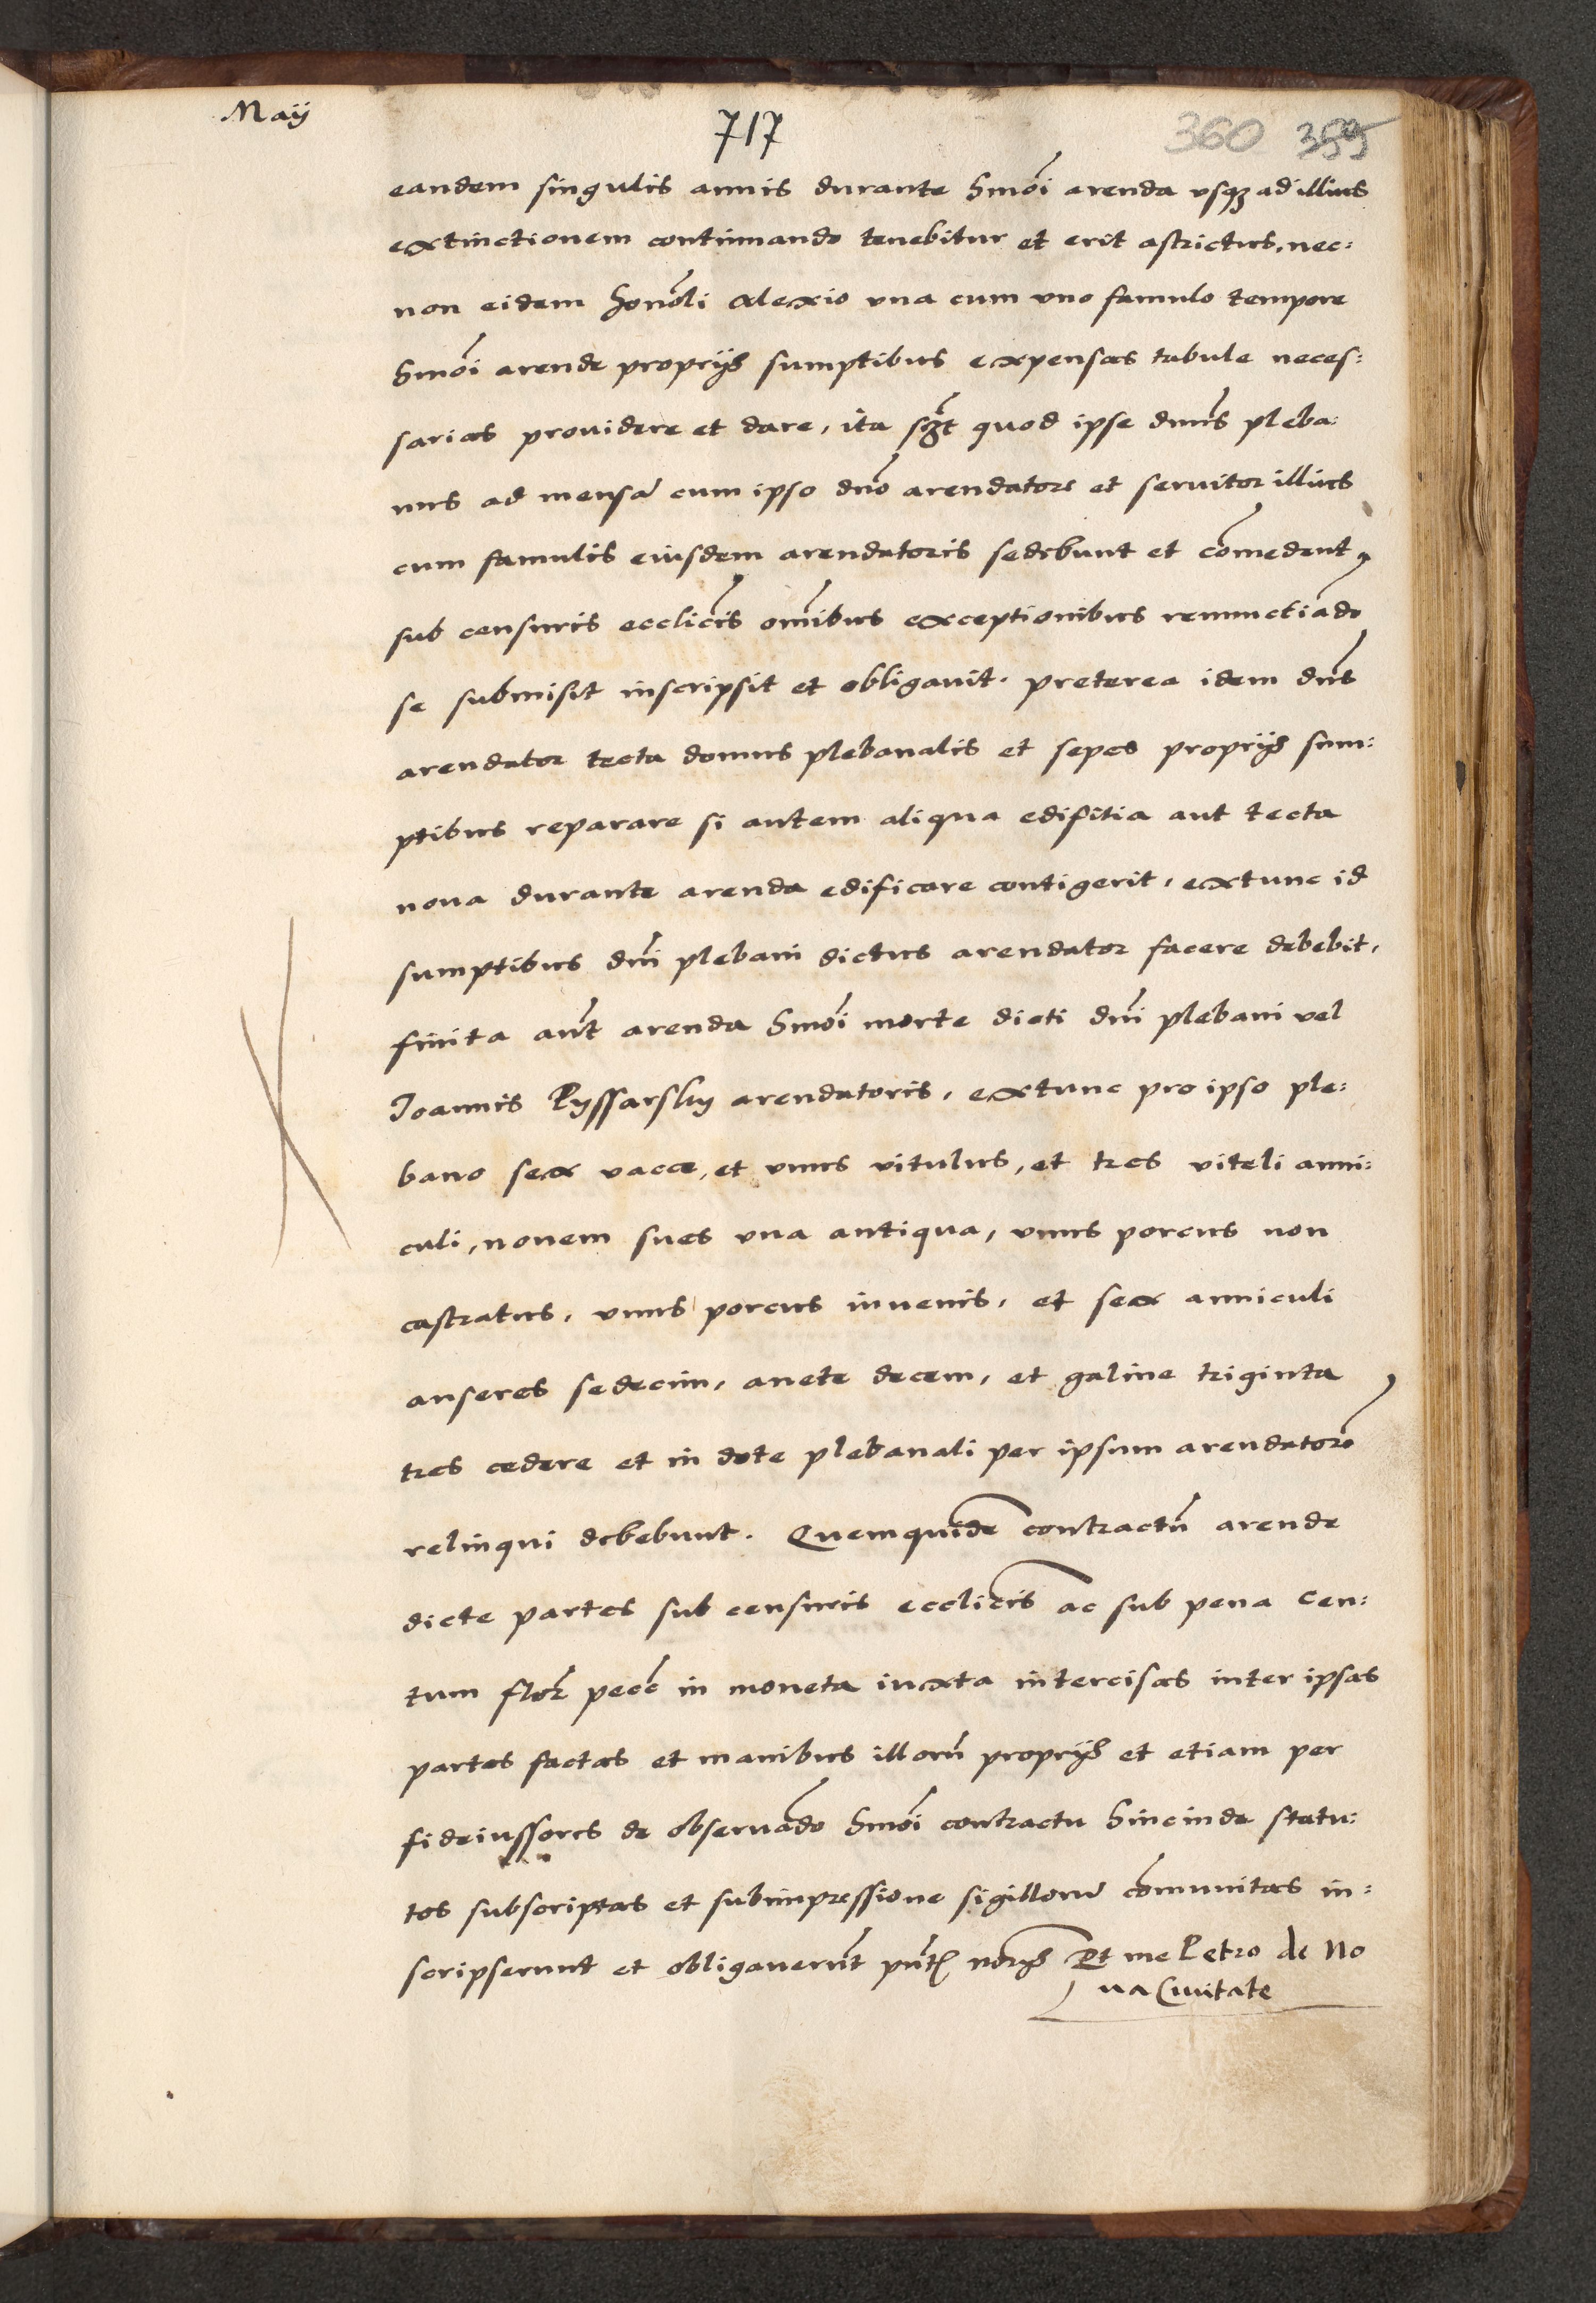 Maÿ
717
360 359
eandem singulis annis durante hmoi̅ arenda vsqꝫ ad illius
extinctionem continuando tenebitur et erit astrictus, nec:
non eidem honoli̅ Alexio vna cum vno famulo tempore
hmoi̅ arende proprijs sumptibus expensas tabule neces:
sarias prouidere et dare, ita sꝫt quod ipse dnus̅ pleba:
nus ad mensa̅ cum ipso dno̅ arendatore et seruitor illius
cum famulis eiusdem arendatoris sedebunt et co̅medent,
sub censuris eccli̅cis om̅ibus exceptionibus renunctia̅do
se submisit inscripsit et obligauit. preterea idem dns̅
arendator tecta domus plebanalis et sepes proprijs sum:
ptibus reparare si autem aliqua edifitia aut tecta
noua durante arenda edificare contigerit, extunc id
sumptibus dni̅ plebani dictus arendator facere debebit,
finita aut̅ arenda hmoi̅ morte dicti dni̅ plebani vel
Joannis Pyssarsky arendatoris, extunc pro ipso ple:
bano sex vacce, et vnus vitulus, et tres viteli anni:
culi, nouem sues vna antiqua, vnus porcus non
castratus, vnus porcus iuuenis, et sex anniculi
anseres sedecim, anete decem, et galine triginta
tres cedere et in dote plebanali per ipsum arendatore̅
relinqui debebunt. Quemquide̅ contractu̅ arende
dicte partes sub censuris eccli̅cis ac sub pena Cen:
tum flor̅ pecc̅ in moneta iuxta intercisas inter ipsas
partes factas et manibus illoru̅ proprijs et etiam per
fideiussores de obserua̅do hmoi̅ contractu hincinde statu:
tos subscriptas et subimpressione sigilloru̅ co̅munitas in:
scripserunt et obligauerun̅t pn̅tꝭ nor̅ijs Et me Petro de No
ua Ciuitate